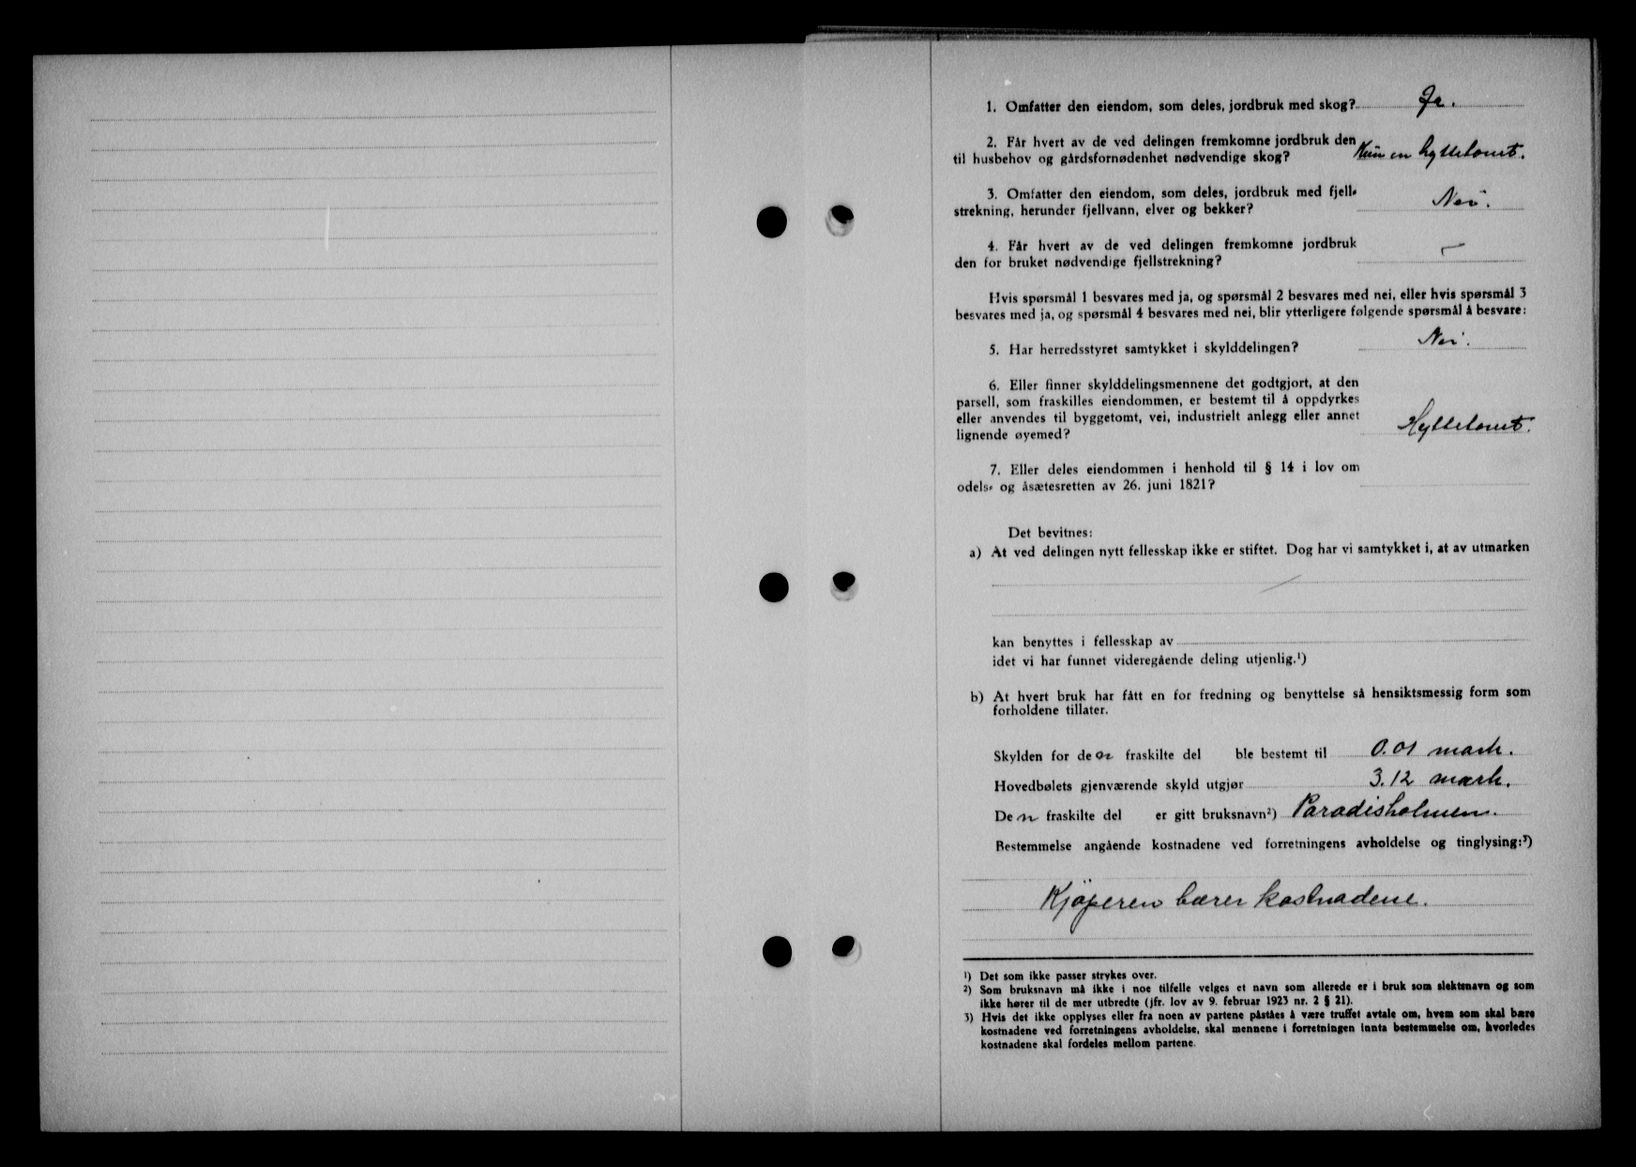 1. Omfatter den eiendom, som deles, jordbruk med skog? Ja.
2. Får hvert av de ved delingen fremkomne jordbruk den
til husbehov og gårdsfornødenhet nødvendige skog? Kun en hyttetomt.
3. Omfatter den eiendom, som deles, jordbruk med fjell-
strekning, herunder fjellvann, elver og bekker? Nei.
4. Får hvert av de ved delingen fremkomne jordbruk
den for bruket nødvendige fjellstrekning? —
Hvis spørsmål 1 besvares med ja, og spørsmål 2 besvares med nei, eller hvis spørsmål 3
besvares med ja, og spørsmål 4 besvares med nei, blir ytterligere følgende spørsmål å besvare:
5. Har herredsstyret samtykket i skylddelingen? Nei.
6. Eller finner skylddelingsmennene det godtgjort, at den
parsell, som fraskilles eiendommen, er bestemt til å oppdyrkes
eller anvendes til byggetomt, vei, industrielt anlegg eller annet
lignende øyemed? Hyttetomt.
7. Eller deles eiendommen i henhold til § 14 i lov om
odels- og åsætesretten av 26. juni 1821?
Det bevitnes:
a) At ved delingen nytt fellesskap ikke er stiftet. Dog har vi samtykket i, at av utmarken
kan benyttes i fellesskap av
idet vi har funnet videregående deling utjenlig.¹)
b) At hvert bruk har fått en for fredning og benyttelse så hensiktsmessig form som
forholdene tillater.
Skylden for den fraskilte del ble bestemt til 0.01 mark.
Hovedbølets gjenværende skyld utgjør 3.12 mark.
Den fraskilte del er gitt bruksnavn²) Paradisholmen.
Bestemmelse angående kostnadene ved forretningens avholdelse og tinglysing:³)
Kjøperen bærer kostnadene.
¹) Det som ikke passer strykes over.
²) Som bruksnavn må ikke i noe tilfelle velges et navn som allerede er i bruk som slektsnavn og som
ikke hører til de mer utbredte (jfr. lov av 9. februar 1923 nr. 2 § 21).
3) Hvis det ikke opplyses eller fra noen av partene påståes å være truffet avtale om, hvem som skal bære
kostnadene ved forretningens avholdelse, skal mennene i forretningen innta bestemmelse om, hvorledes
kostnadene skal fordeles mellom partene.